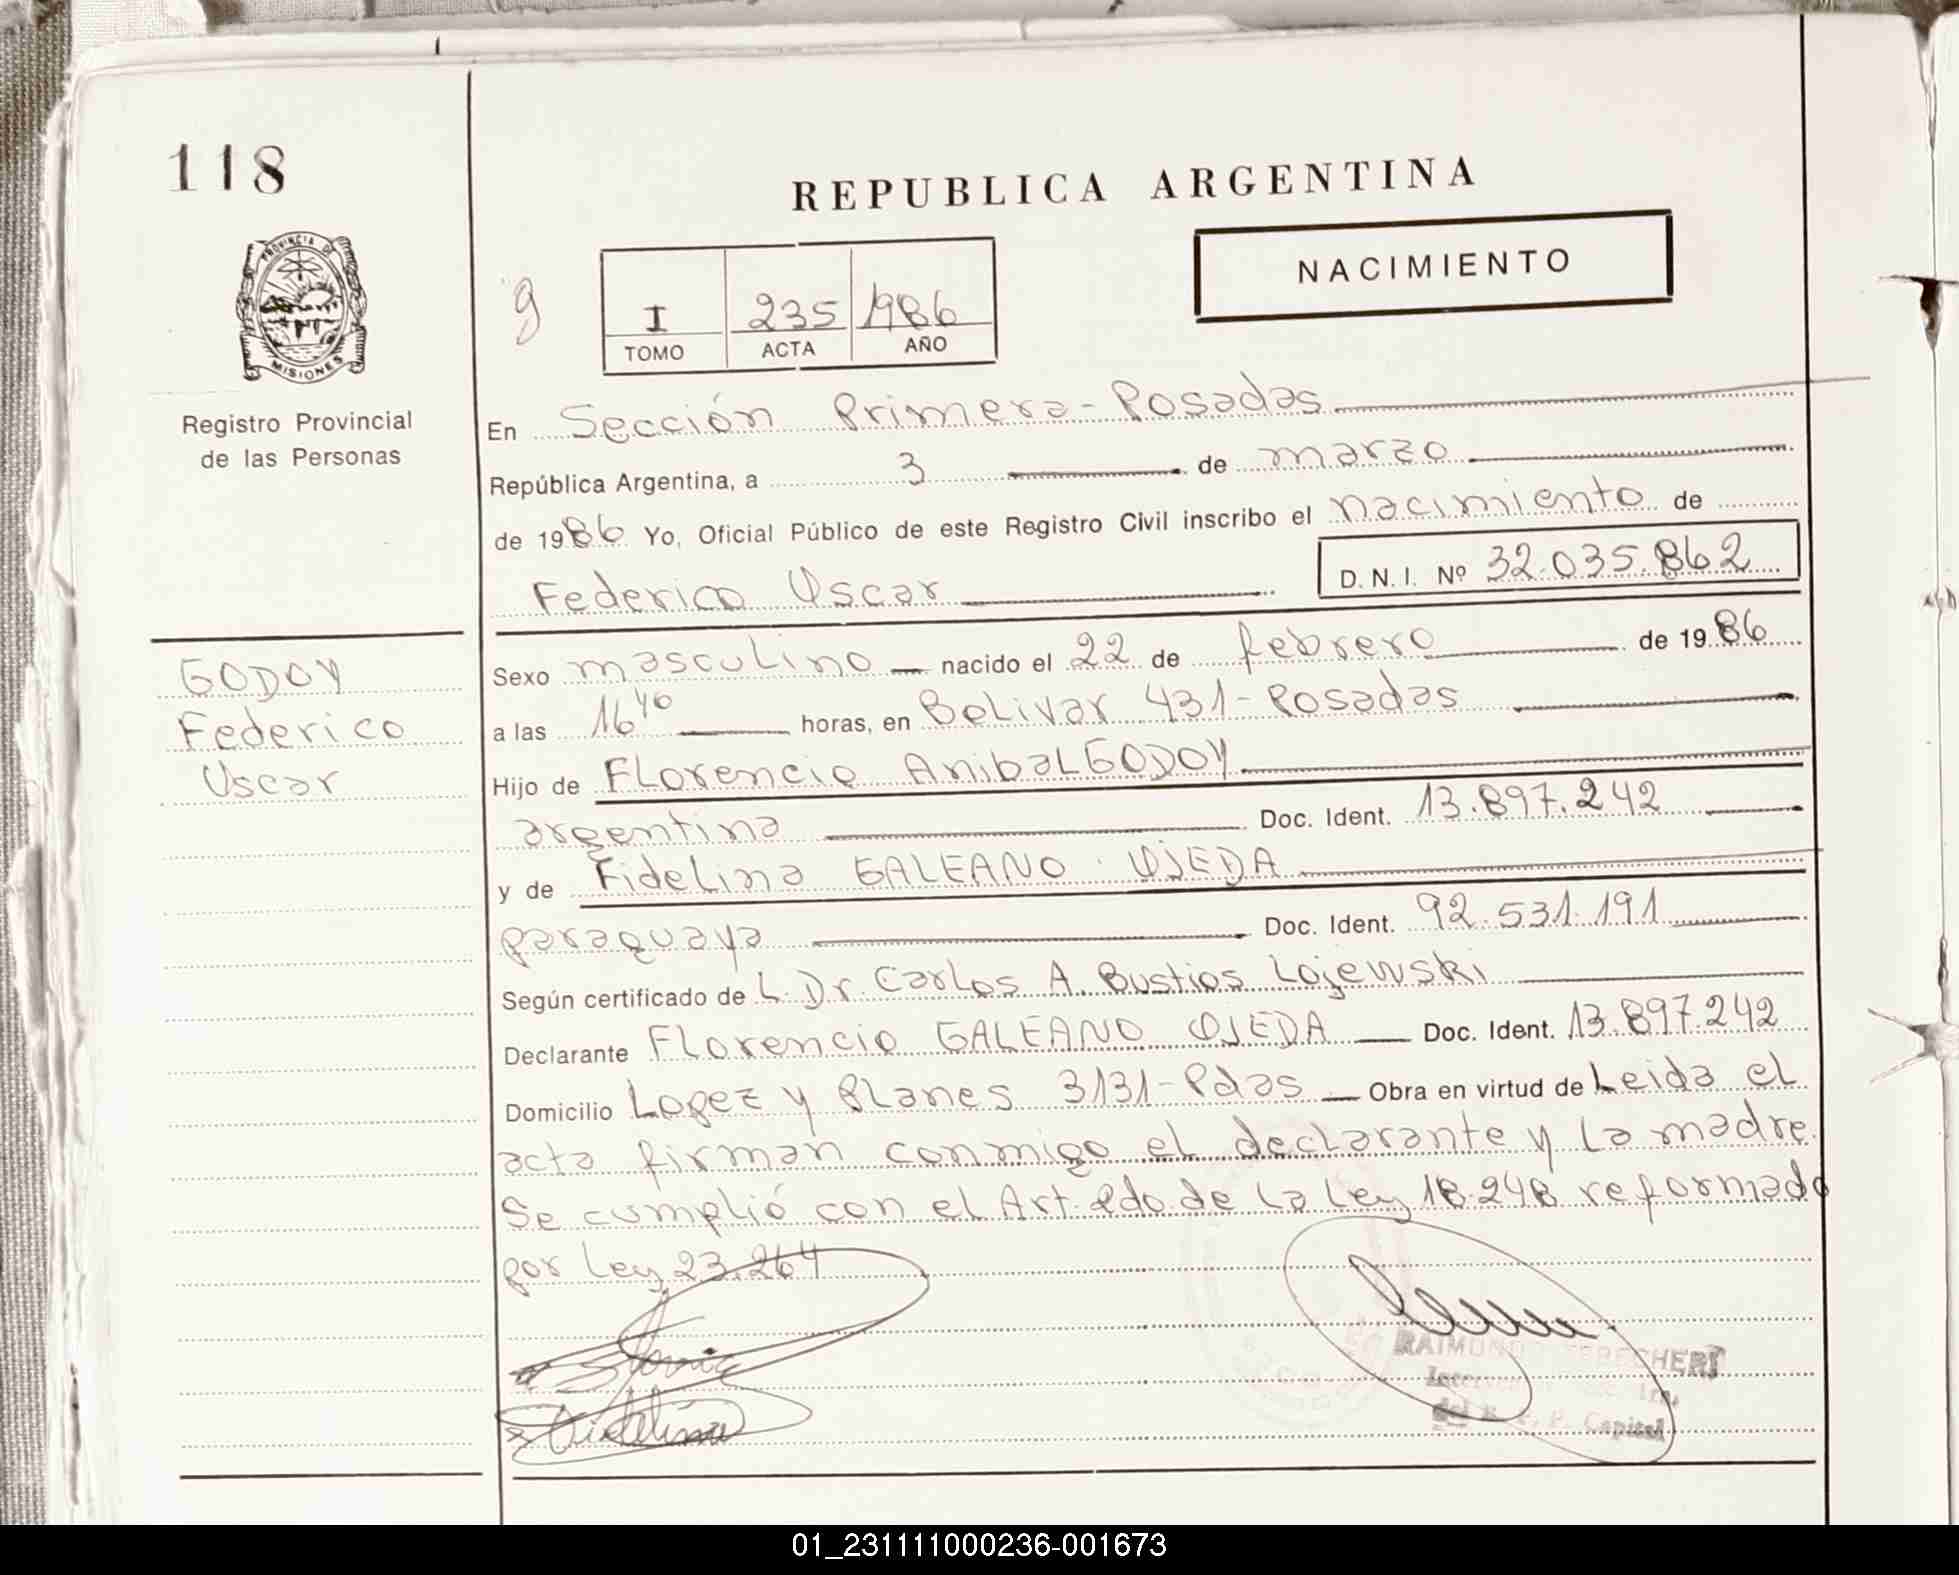 118
REPUBLICA ARGENTINA
NACIMIENTO
PROVINCIA DE
MISIONES
9
I 235 1986
TOMO ACTA AÑO
Registro Provincial
de las Personas
En Sección Primera - Posadas
República Argentina, a 3 de marzo
de 1986 Yo, Oficial Público de este Registro Civil inscribo el nacimiento de
Federico Oscar D. N. I. Nº 32.035.862
GODOY
Federico
Oscar
Sexo masculino nacido el 22 de febrero de 1986
a las 16 40 horas, en Bolivar 431 - Posadas
Hijo de Florencio Anibal GODOY
argentina Doc. Ident. 13.897.242
y de Fidelina GALEANO OJEDA
paraguaya Doc. Ident. 92.531.191
Según certificado de L. Dr. Carlos A. Bustios Lojewski
Declarante Florencio GALEANO OJEDA Doc. Ident. 13.897.242
Domicilio Lopez y Planes 3131 - Pdas Obra en virtud de Leida el
acta firman conmigo el declarante y la madre.
Se cumplió con el Art. 2do. de la Ley 18.248 reformado
por Ley 23.264
Fidelina
RAIMUN
Capital
01_231111000236-001673